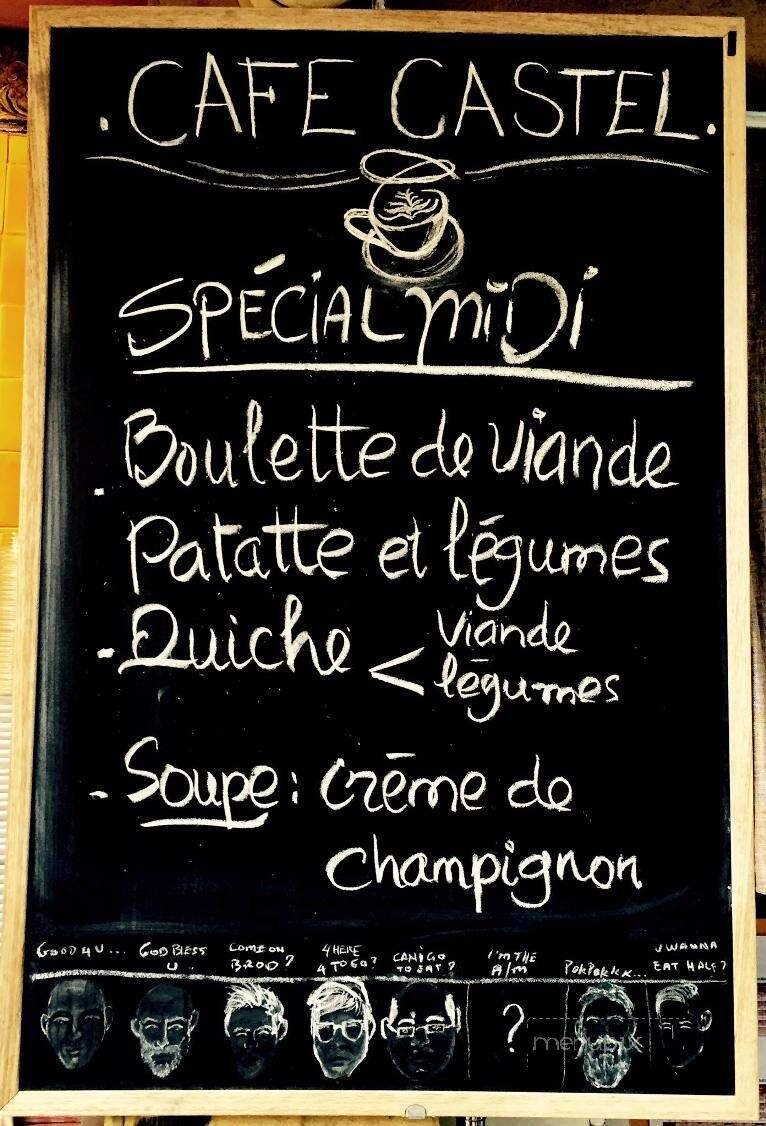 . CAFE CASTEL.
SPÉCIAL MIDI
Boulette de viande
. Patatte et légumes
- Quiche < viande
légumes
- Soupe : crème de
champignon
GOOD 4 U...
GOD BLESS
U..
COME ON
BROD?
4 HERE
4 TO GO?
CAN I GO
TO EAT?
I'M THE
A/M
PokPokkk...
U WANNA
EAT HALF?
?
menupix